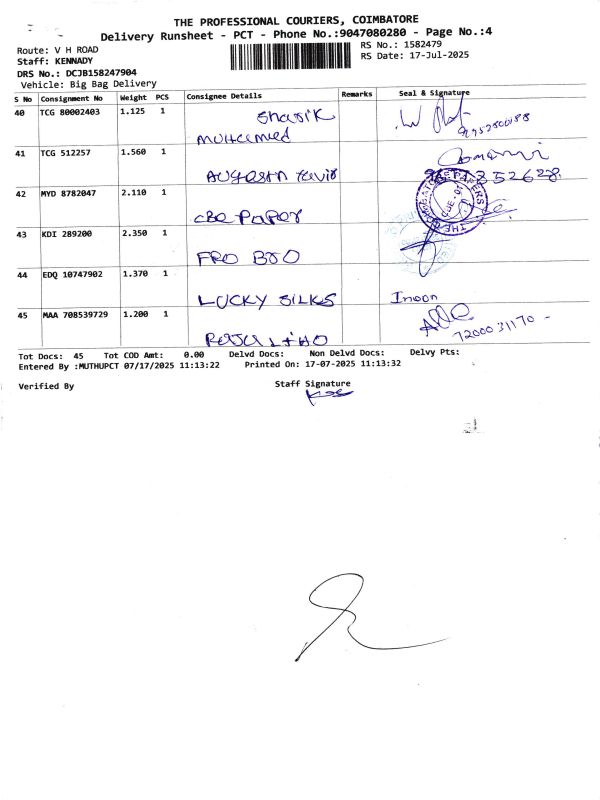 THE PROFESSIONAL COURIERS, COIMBATORE
Delivery Runsheet - PCT - Phone No.:9047080280 - Page No.:4
Route: V H ROAD
RS No.: 1582479
Staff: KENNADY
RS Date: 17-Jul-2025
DRS No.: DCJB158247904
Vehicle: Big Bag Delivery
S No Consignment No Weight PCS Consignee Details Remarks Seal & Signature
40 TCG 80002403 1.125 1 Shasik
Muhammed
41 TCG 512257 1.560 1
42 MYD 8782047 2.110 1
CBE PaPer
43 KDI 289200 2.350 1
FRO BJO
44 EDQ 10747902 1.370 1
LUCKY SILKS Inoon
45 MAA 708539729 1.200 1
7200031170 -
Tot Docs: 45 Tot COD Amt: 0.00 Delvd Docs: Non Delvd Docs: Delvy Pts:
Entered By :MUTHUPCT 07/17/2025 11:13:22 Printed On: 17-07-2025 11:13:32
Verified By Staff Signature